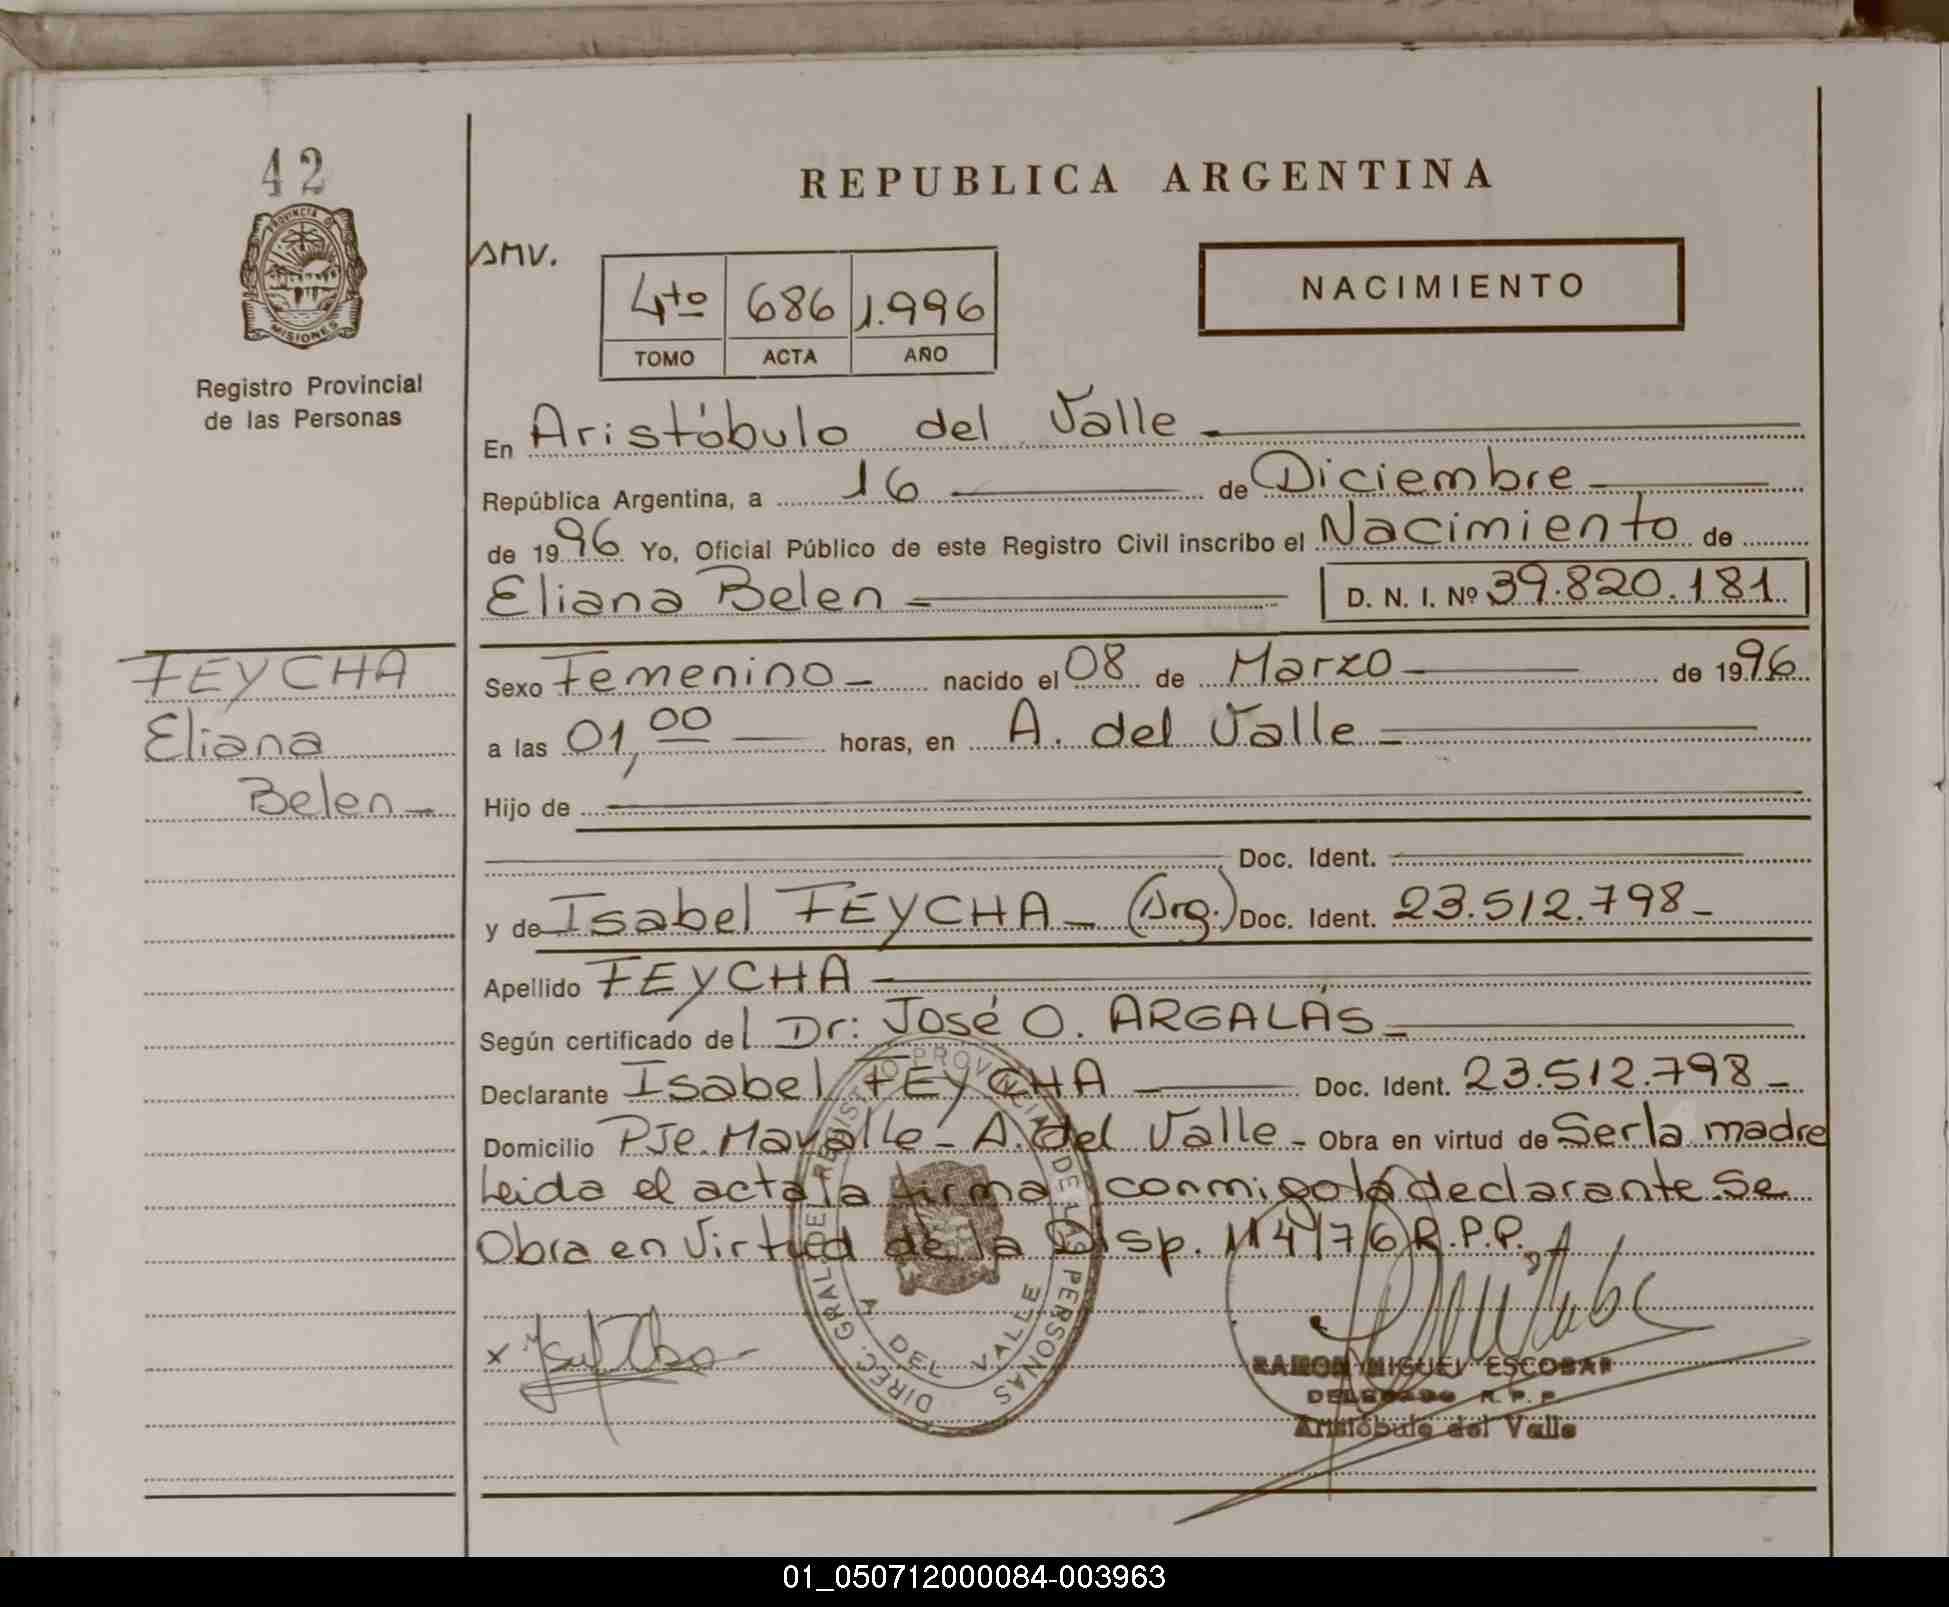 42
PROVINCIA D
MISIONES
Registro Provincial
de las Personas
REPUBLICA ARGENTINA
SMV.
4to 686 1.996
TOMO ACTA AÑO
NACIMIENTO
En Aristóbulo del Valle
República Argentina, a 16 de Diciembre
de 1996 Yo, Oficial Público de este Registro Civil inscribo el Nacimiento de
Eliana Belen D. N. I. Nº 39.820.181
FEYCHA
Eliana
Belen
Sexo Femenino nacido el 08 de Marzo de 1996
a las 01,00 horas, en A. del Valle
Hijo de
Doc. Ident.
y de Isabel FEYCHA (Arg.) Doc. Ident. 23.512.798
Apellido FEYCHA
Según certificado del Dr: José O. ARGALÁS
Declarante Isabel FEYCHA Doc. Ident. 23.512.798
Domicilio PJe. Mavalle - A. del Valle - Obra en virtud de Ser la madre
Leida el acta la firma conmigo la declarante. Se
Obra en Virtud de la Disp. 114/76 R.P.P.
DIREC. GRAL. DEL REGISTRO PROVINCIAL DE LAS PERSONAS
A DEL VALLE
x
RAMON MIGUEL ESCOBAR
DELEGADO R.P.P
Aristóbulo del Valle
01_050712000084-003963